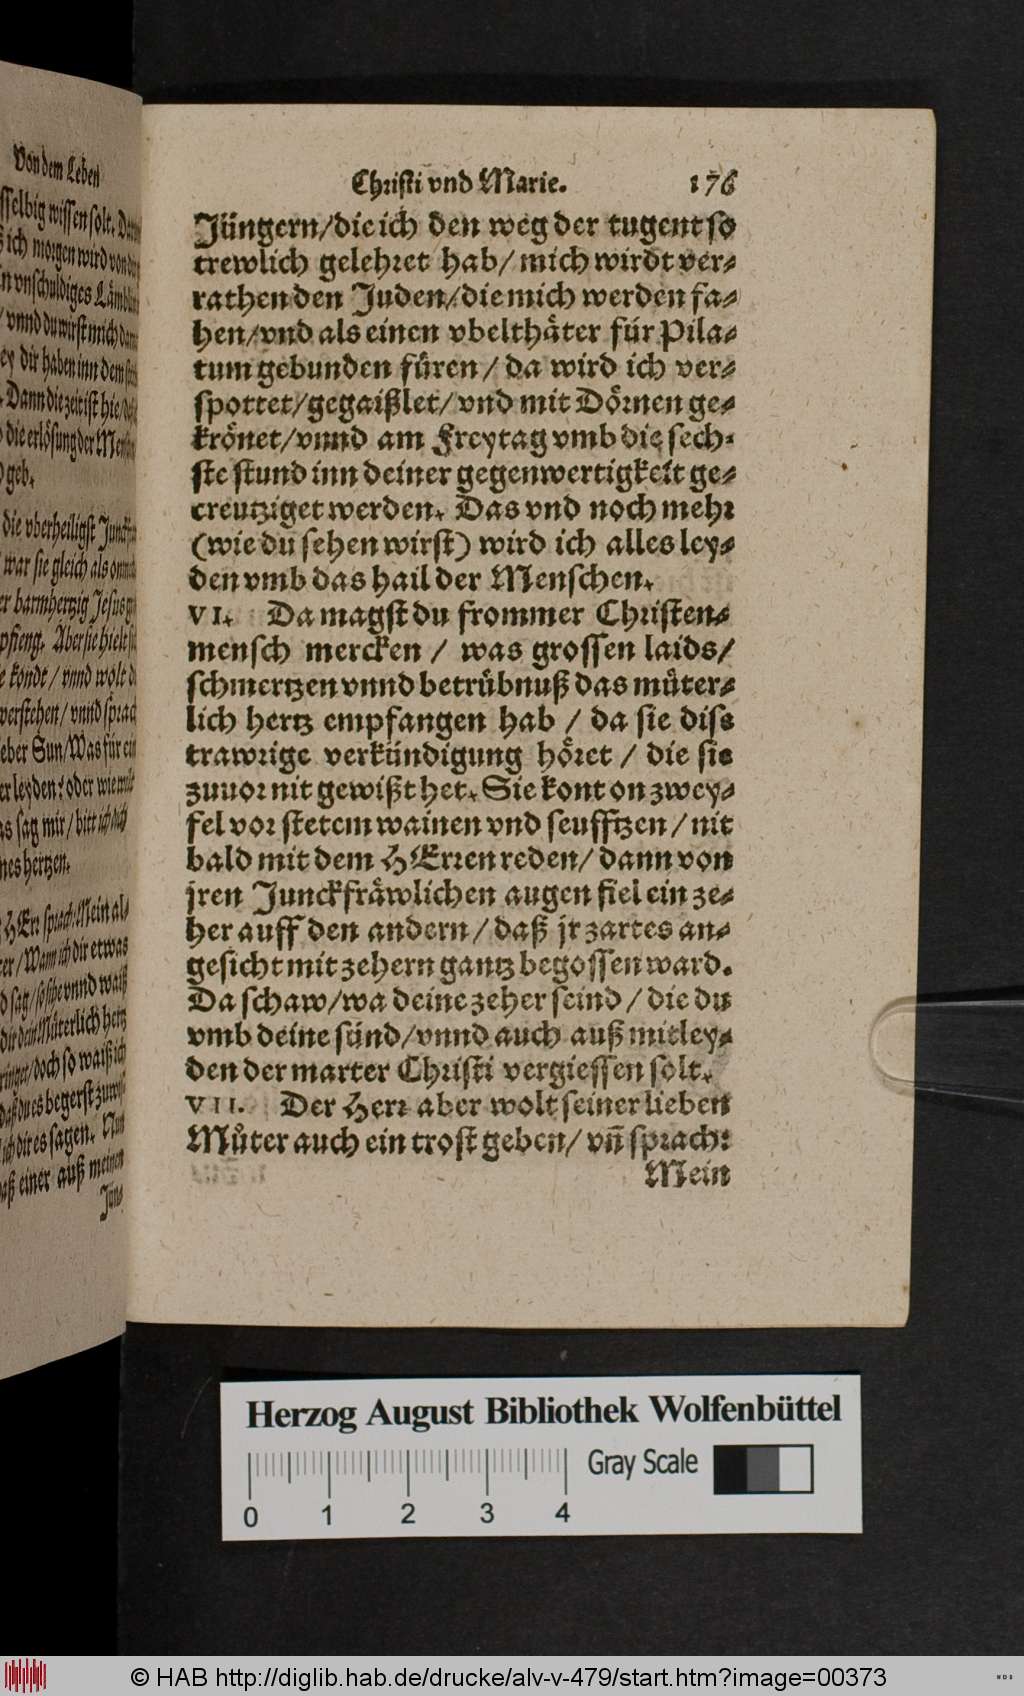 Von dem Leben
sselbig wissen solt.
ich morgen wird von
n vnschuldiges Lämb
/ vnnd du wirst mich
ey dir haben inn dem
. Dann die zeit ist hie/
die erlösung der
geb.
die vberheiligst
war sie gleich als
er barmhertzig Jesus
pfieng. Aber sie hielt
e kondt / vnnd wolt
verstehen / vnnd sprach
eber Sun/ Was für ein
er leyden? oder wie
as sag mir / bitt ich dich
nes hertzen.
HErr sprach: Mein al-
ter / Wann ich dir etwas
d sag / so sihe vnnd waiß
dir dein Müterlich hertz
ringet/ doch so waiß ich
daß du es begerst
ich dir es sagen. Nun
aß einer auß meinen
Jün-
Christi vnd Marie. 176
Jüngern/ die ich den weg der tugent so
trewlich gelehret hab/ mich wirdt ver-
rathen den Juden/ die mich werden fa-
hen/ vnd als einen vbelthäter für Pila-
tum gebunden füren / da wird ich ver-
spottet/ gegaißlet/ vnd mit Dörnen ge-
krönet/ vnnd am Freytag vmb die sech-
ste stund inn deiner gegenwertigkeit ge-
creutziget werden. Das vnd noch mehr
(wie du sehen wirst) wird ich alles ley-
den vmb das hail der Menschen.
VI. Da magst du frommer Christen-
mensch mercken / was grossen laids/
schmertzen vnnd betrübnuß das müter-
lich hertz empfangen hab / da sie dise
trawrige verkündigung höret / die sie
zuuor nit gewißt het. Sie kont on zwey-
fel vor stetem wainen vnd seufftzen / nit
bald mit dem HErren reden/ dann von
jren Junckfräwlichen augen fiel ein ze-
her auff den andern / daß jr zartes an-
gesicht mit zehern gantz begossen ward.
Da schaw/ wa deine zeher seind / die du
vmb deine sünd/ vnnd auch auß mitley-
den der marter Christi vergiessen solt.
VII. Der Herr aber wolt seiner lieben
Müter auch ein trost geben/ vn̄ sprach:
Mein
Herzog August Bibliothek Wolfenbüttel
Gray Scale
0 1 2 3 4
© HAB http://diglib.hab.de/drucke/alv-v-479/start.htm?image=00373